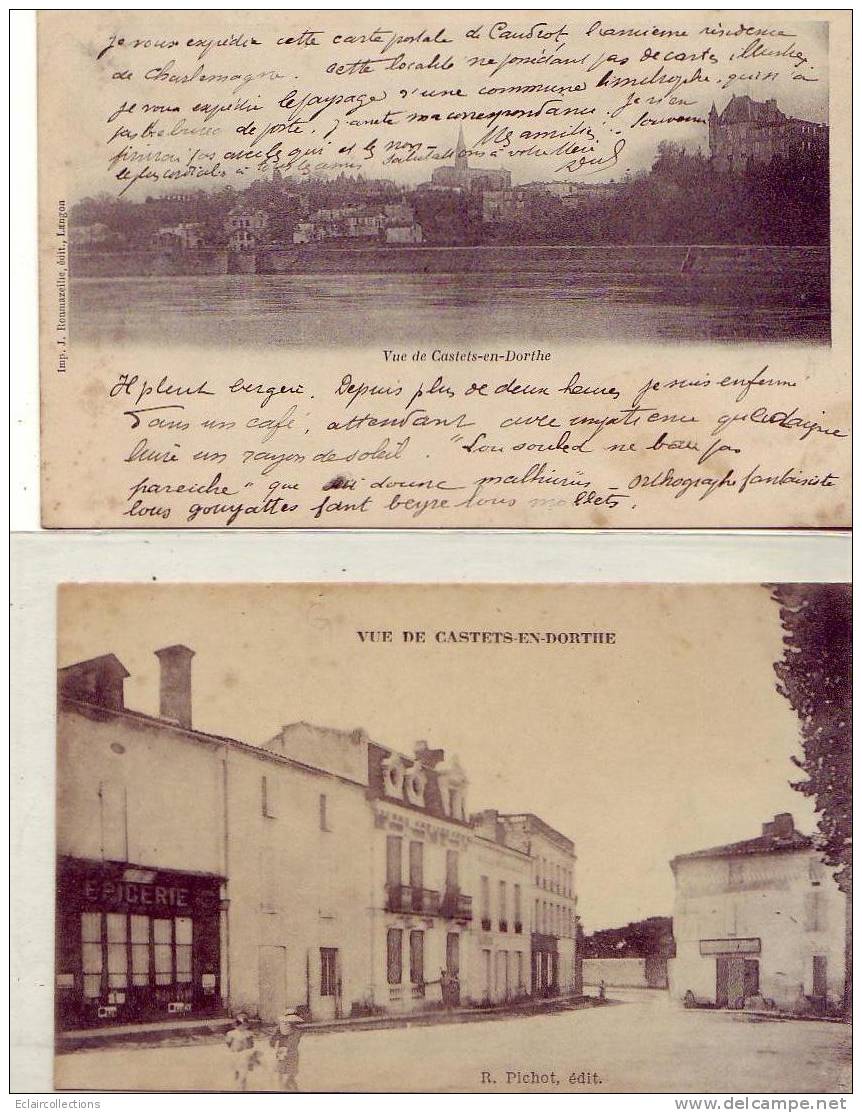 Je vous expédie cette carte postale de Caudrot, l'ancienne résidence
de Charlemagne. Cette localité ne possédant pas de cartes illustrées
je vous expédie le paysage d'une commune limitrophe, qui n'a
pas de bureau de poste. J'arrête ma correspondance. Je n'en
finirai pas avec les qui et les non. Mes amitiés. Souvenirs
le plus cordiales à tous les amis Salutations à votre
Imp. J. Roumazeille, édit., Langon
Vue de Castets-en-Dorthe
Il pleut bergère. Depuis plus de deux heures je suis enfermé
dans un café, attendant avec impatience que daigne
luire un rayon de soleil. "Lou souled ne baou pas
pareiche" que doune malhurüs - orthographe fantaisiste
lous gouyattes fant beyre lous mollets.
VUE DE CASTETS-EN-DORTHE
EPICERIE
R. Pichot, édit.
Eclaircollections
http://www.delcampe.net